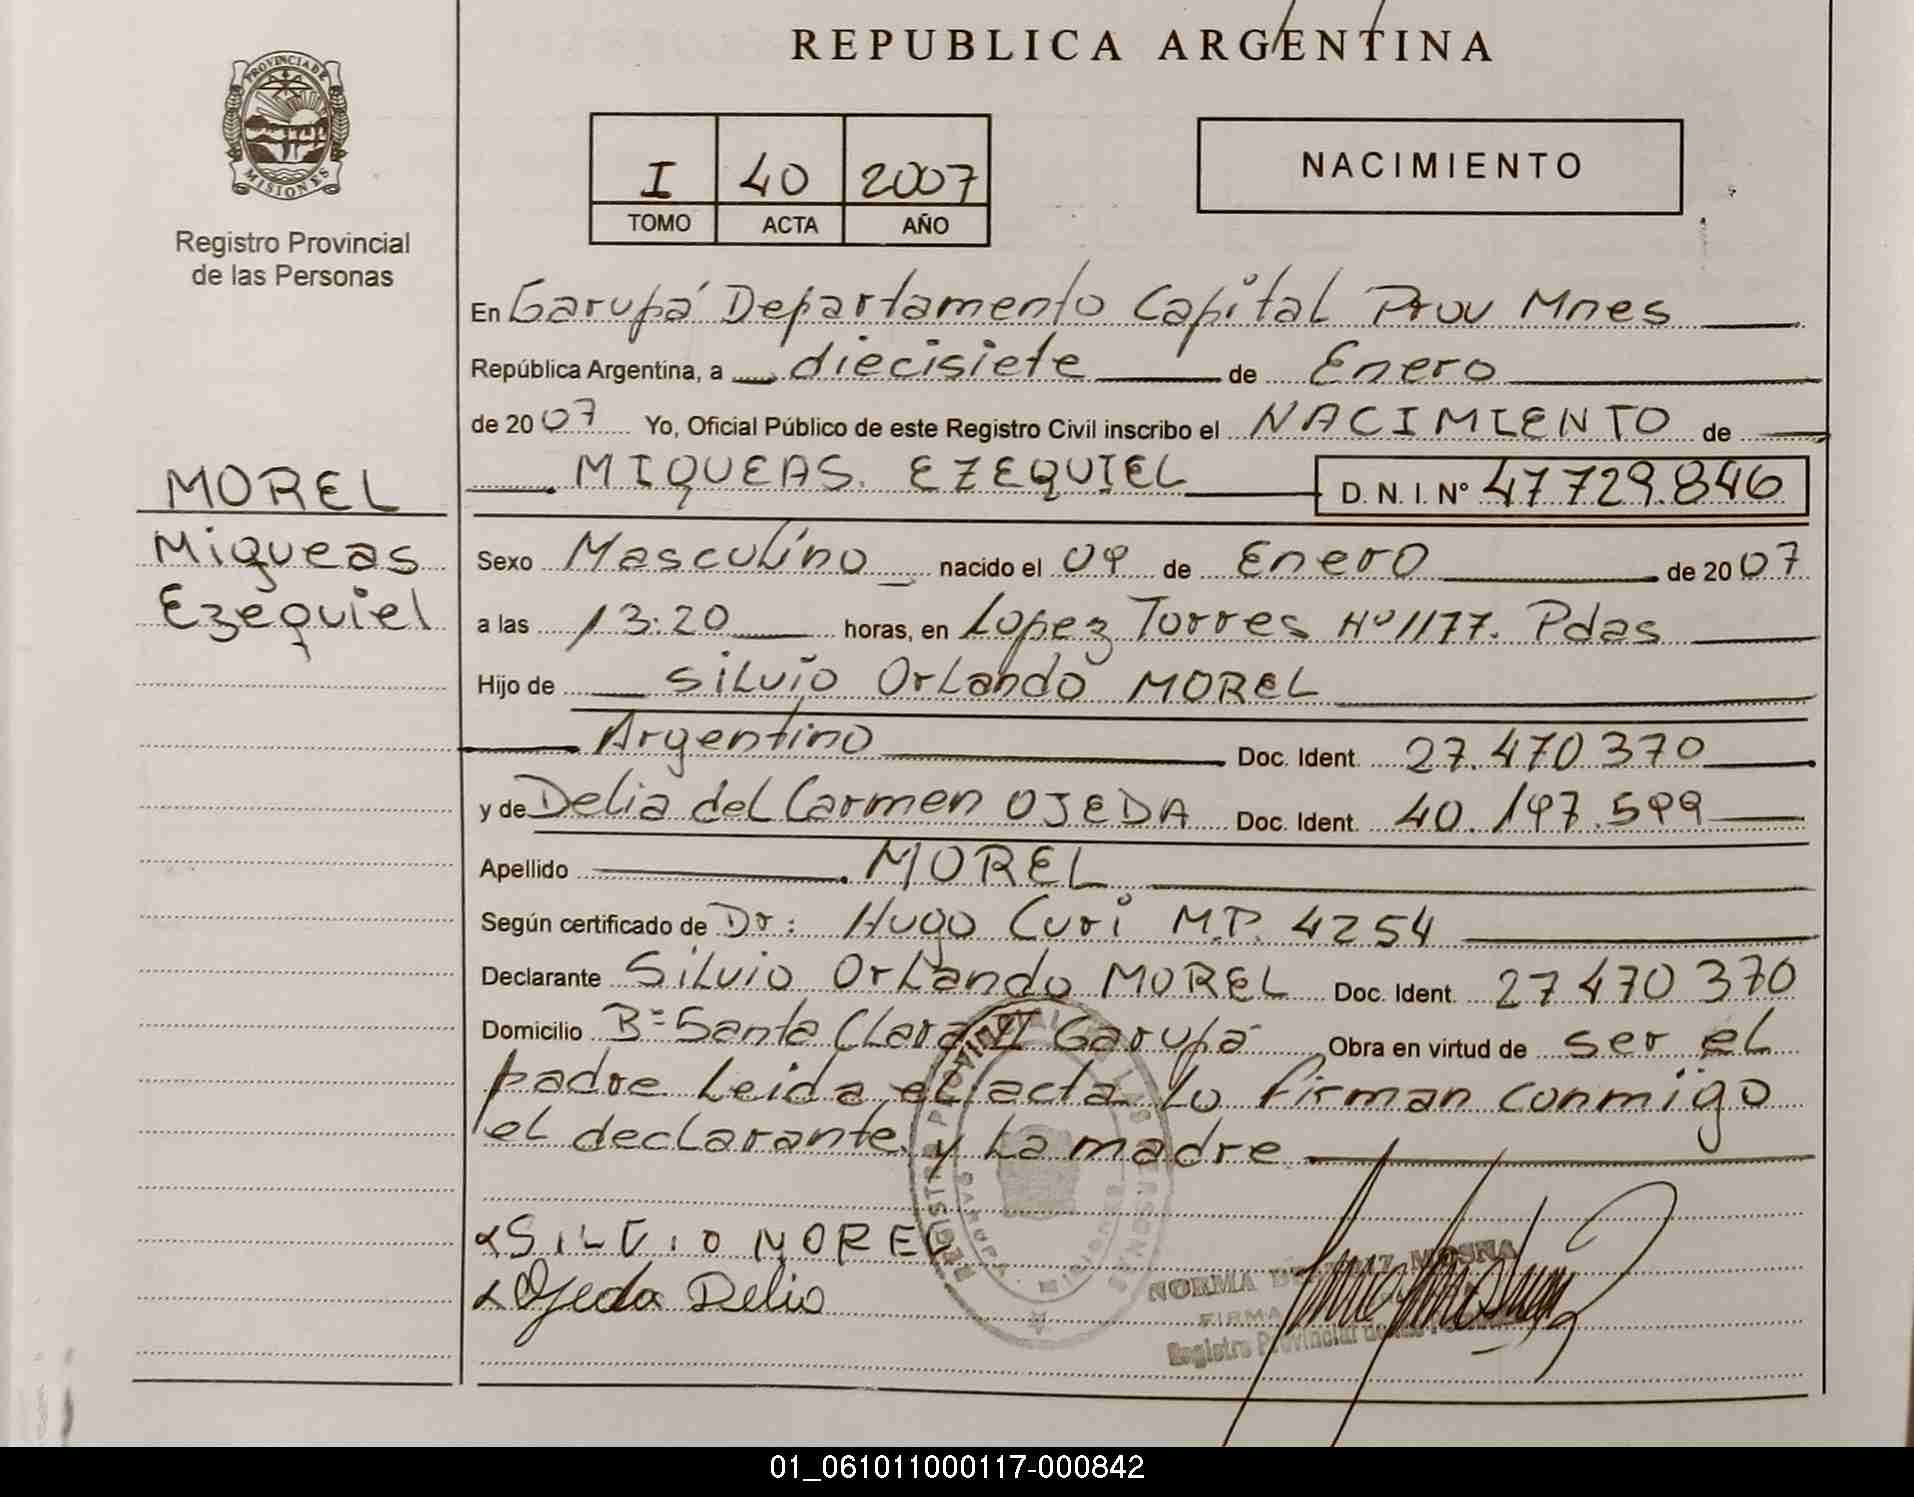 REPUBLICA ARGENTINA
PROVINCIA DE
MISIONES
Registro Provincial
de las Personas
I 40 2007
TOMO ACTA AÑO
NACIMIENTO
En Garupá Departamento Capital Prov Mnes
República Argentina, a diecisiete de Enero
de 2007 Yo, Oficial Público de este Registro Civil inscribo el NACIMIENTO de
MIQUEAS EZEQUIEL D.N.I. Nº 47729.846
MOREL
Miqueas
Ezequiel
Sexo Masculino nacido el 09 de Enero de 2007
a las 13:20 horas, en Lopez Torres Nº 1177. Pdas
Hijo de Silvio Orlando MOREL
Argentino Doc. Ident. 27.470 370
y de Delia del Carmen OJEDA Doc. Ident. 40.197.599
Apellido MOREL
Según certificado de Dr: Hugo Curi M.P. 4254
Declarante Silvio Orlando MOREL Doc. Ident. 27 470 370
Domicilio Bº Santa Clara II Garupá Obra en virtud de ser el
padre Leida el acta Lo firman conmigo
el declarante y La madre
SILVIO MOREL
Ojeda Delia
NORMA
FIRMA
Registro Provincial de las
01_061011000117-000842